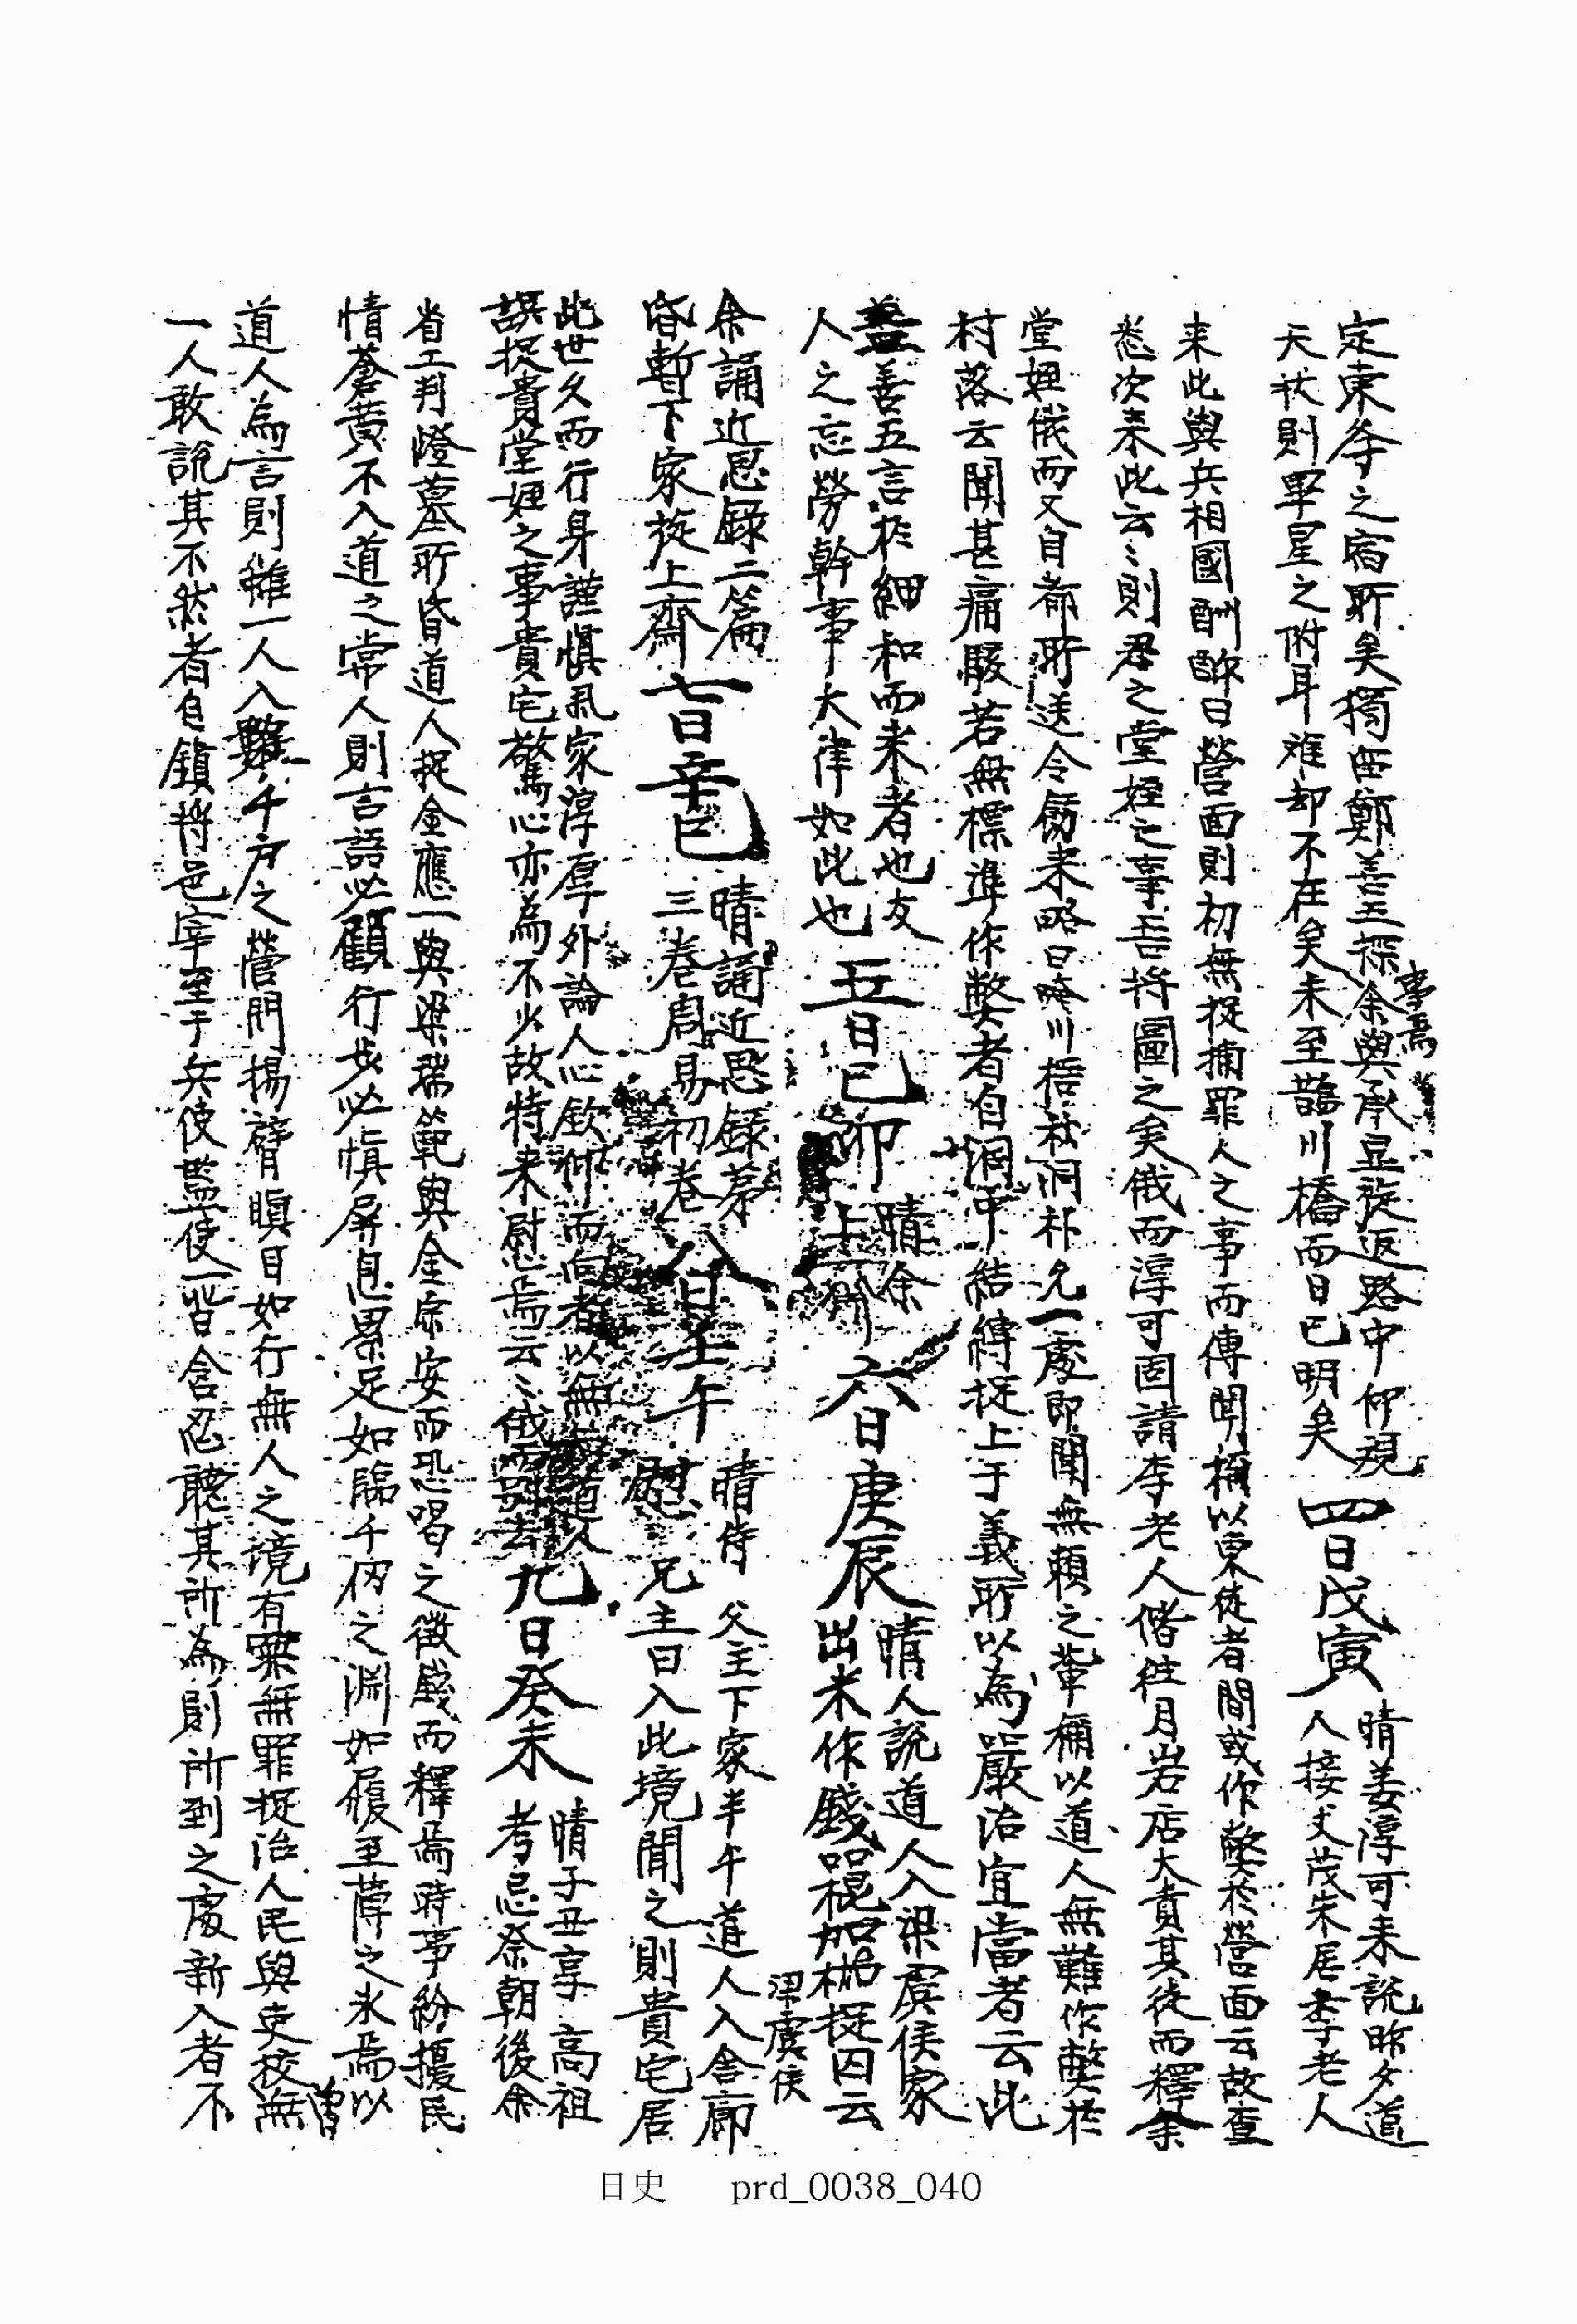 定東峯之宿所矣獨西鄭善五探余與承显旋返路中仰視
事焉
天状則畢星之附耳难却不在矣未至鵲川橋而日已明矣
四日戊寅
晴姜淳可来説昨夕道
人接丈茂朱居李老人
来此與兵相國酬酢曰營面則初無捉捕罪人之事而傳聞稱以東徒者間或作弊於營面云故查
悉次来此云〻則君之堂姪之事吾将圖之矣俄而淳可固請李老人偕往月岩店大責其徒而釋余
堂姪俄而又自都所送令飭来略曰 川梧秋洞朴先一處即聞無頼之輩稱以道人無難作弊於
村落云聞甚痛駭若無標準作弊者自洞中結縛捉上于義所以為嚴治宜當者云此
盖善五言於細和而来者也友
人之忘勞幹事大律如此也
五日己卯
晴余
上齋
六日庚辰
晴人説道人入梁虞侯家
出米作錢 棍加 捉囚云
梁虞侯
余誦近思錄二篇
昏暫下家旋上齋
七日辛巳
晴誦近思錄蒙
三卷周易初卷
八日壬午
晴侍 父主下家半午道人入舍廊
慰 兄主曰入此境聞之則貴宅居
此世久而行身謹慎且家淳厚外論人心欽仰而向者以無 道人
誤捉貴堂姪之事貴宅驚心亦為不少故特来慰焉云〻俄而 去
九日癸未
晴子丑享 高祖
考忌祭朝後余
省工判燈墓所昏道人捉金應一與梁瑞範與金宗安而恐喝之徵錢而釋焉時事紛擾民
情蒼黄不入道之常人則言語必顧行步必慎屏息累足如臨千仞之淵如履至薄之氷焉以
曾
道人為言則雖一人入難千戶之營門揚臂瞋目如行無人之境有罪無罪捉治人民與吏校無
一人敢説其不然者自鎮将邑宰至于兵使監使一皆含忍聽其所為則所到之處新入者不
日史 prd_0038_040